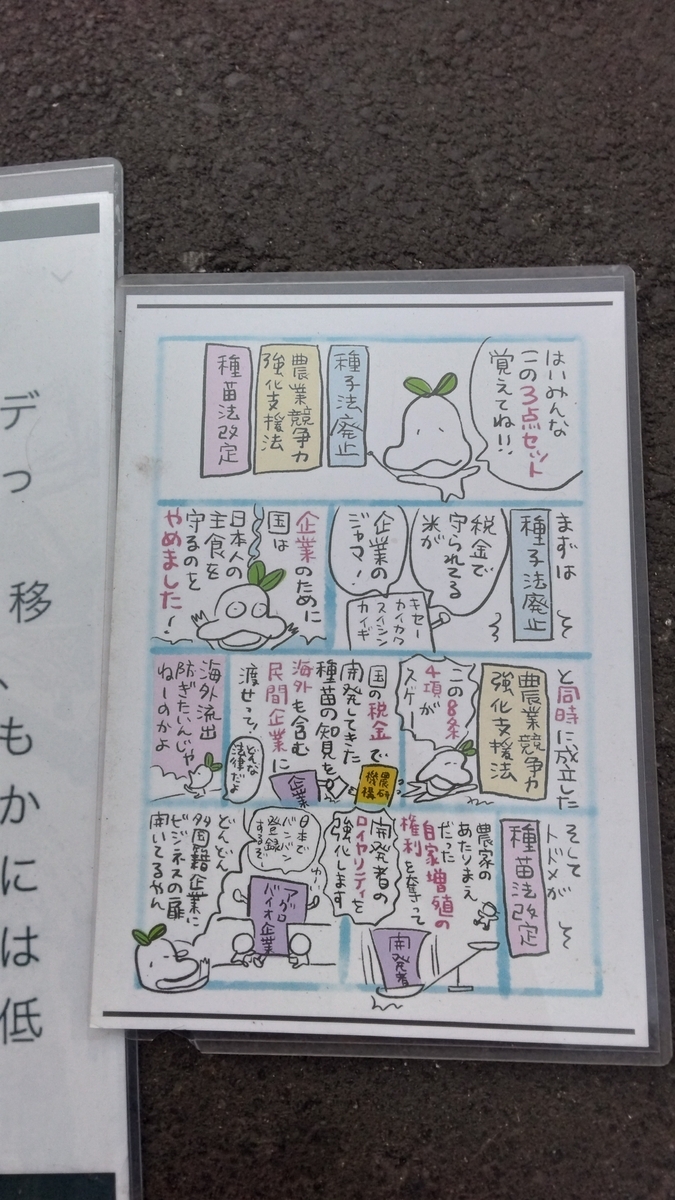 はいみんな
この3点セット
覚えてね!!
種子法廃止
農業競争力
強化支援法
種苗法改定
まずは
種子法廃止
税金で
守られてる
米が
企業の
ジャマ!
キセー
カイカク
スイシン
カイギ
企業のために
国は
日本人の
主食を
守るのを
やめました!
と同時に成立した
農業競争力
強化支援法
この8条
4項が
スゲー
国の税金で
開発してきた
種苗の知見を
海外も含む
民間企業に
渡せって!
農研
機構
企業
どんな
法律だよ
海外流出
防ぎたいんじゃ
ねーのかよ
そして
トドメが
種苗法改定
農家の
あたりまえ
だった
自家増殖の
権利を奪って
開発者の
ロイヤリティを
強化します
開発者
日本で
バンバン
登録
するぞー
アグロ
バイオ企業
どんどん
多国籍企業に
ビジネスの扉
開いてるやん
デ
っ
移
、
も
か
に
は
低